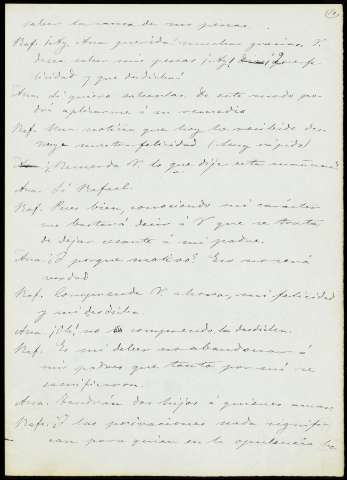 saber la causa de sus penas.
Raf. ¡Ay, Ana querida! muchas gracias. V.
desea saber mis penas ¡Ay! fe-
licidad y que desdicha!
Ana. Si quiero saberlas. De este modo po-
dré aplicarme á su remedio
Raf. Una noticia que hoy he recibido des-
truye nuestra felicidad (muy rápido)
¿Recuerda V. lo que dije esta mañana?
Ana. Sí Rafael.
Raf. Pues bien, conociendo mi carácter
me bastará decir á V que se trata
de dejar cesante á mi padre.
Ana. ¿Y porque motivo? Eso no será
verdad
Raf. Comprende V. ahora, mi felicidad
y mi desdicha.
Ana ¡Oh! no comprendo la desdicha.
Raf. Es mi deber no abandonar á
mis padres que tanto por mí se
sacrificaron.
Ana. Tendrán dos hijos á quienes amar.
Raf. ¿Y las privaciones nada signifi-
can para quien en la opulencia ha